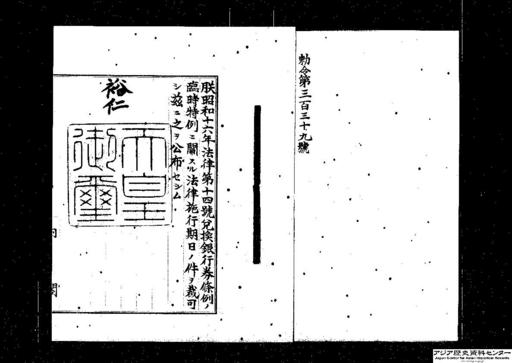 勅令第三百三十九號
朕昭和十六年法律第十四號兌換銀行券條例ノ
臨時特例ニ關スル法律施行期日ノ件ヲ裁可
シ茲ニ之ヲ公布セシム
裕仁
天皇
御璽
内
閣
アジア歴史資料センター
Japan Center for Asian Historical Records